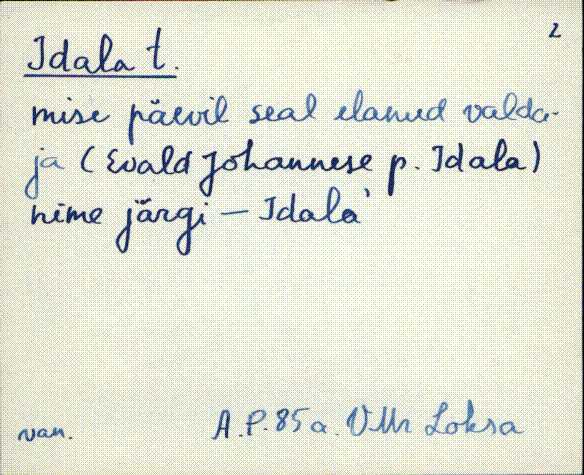 2
Idala t.
mise päevil seal elanud valda-
ja (Evald Johannese p. Idala)
nime järgi – Idala'
van. A.P. 85 a. VMr Loksa